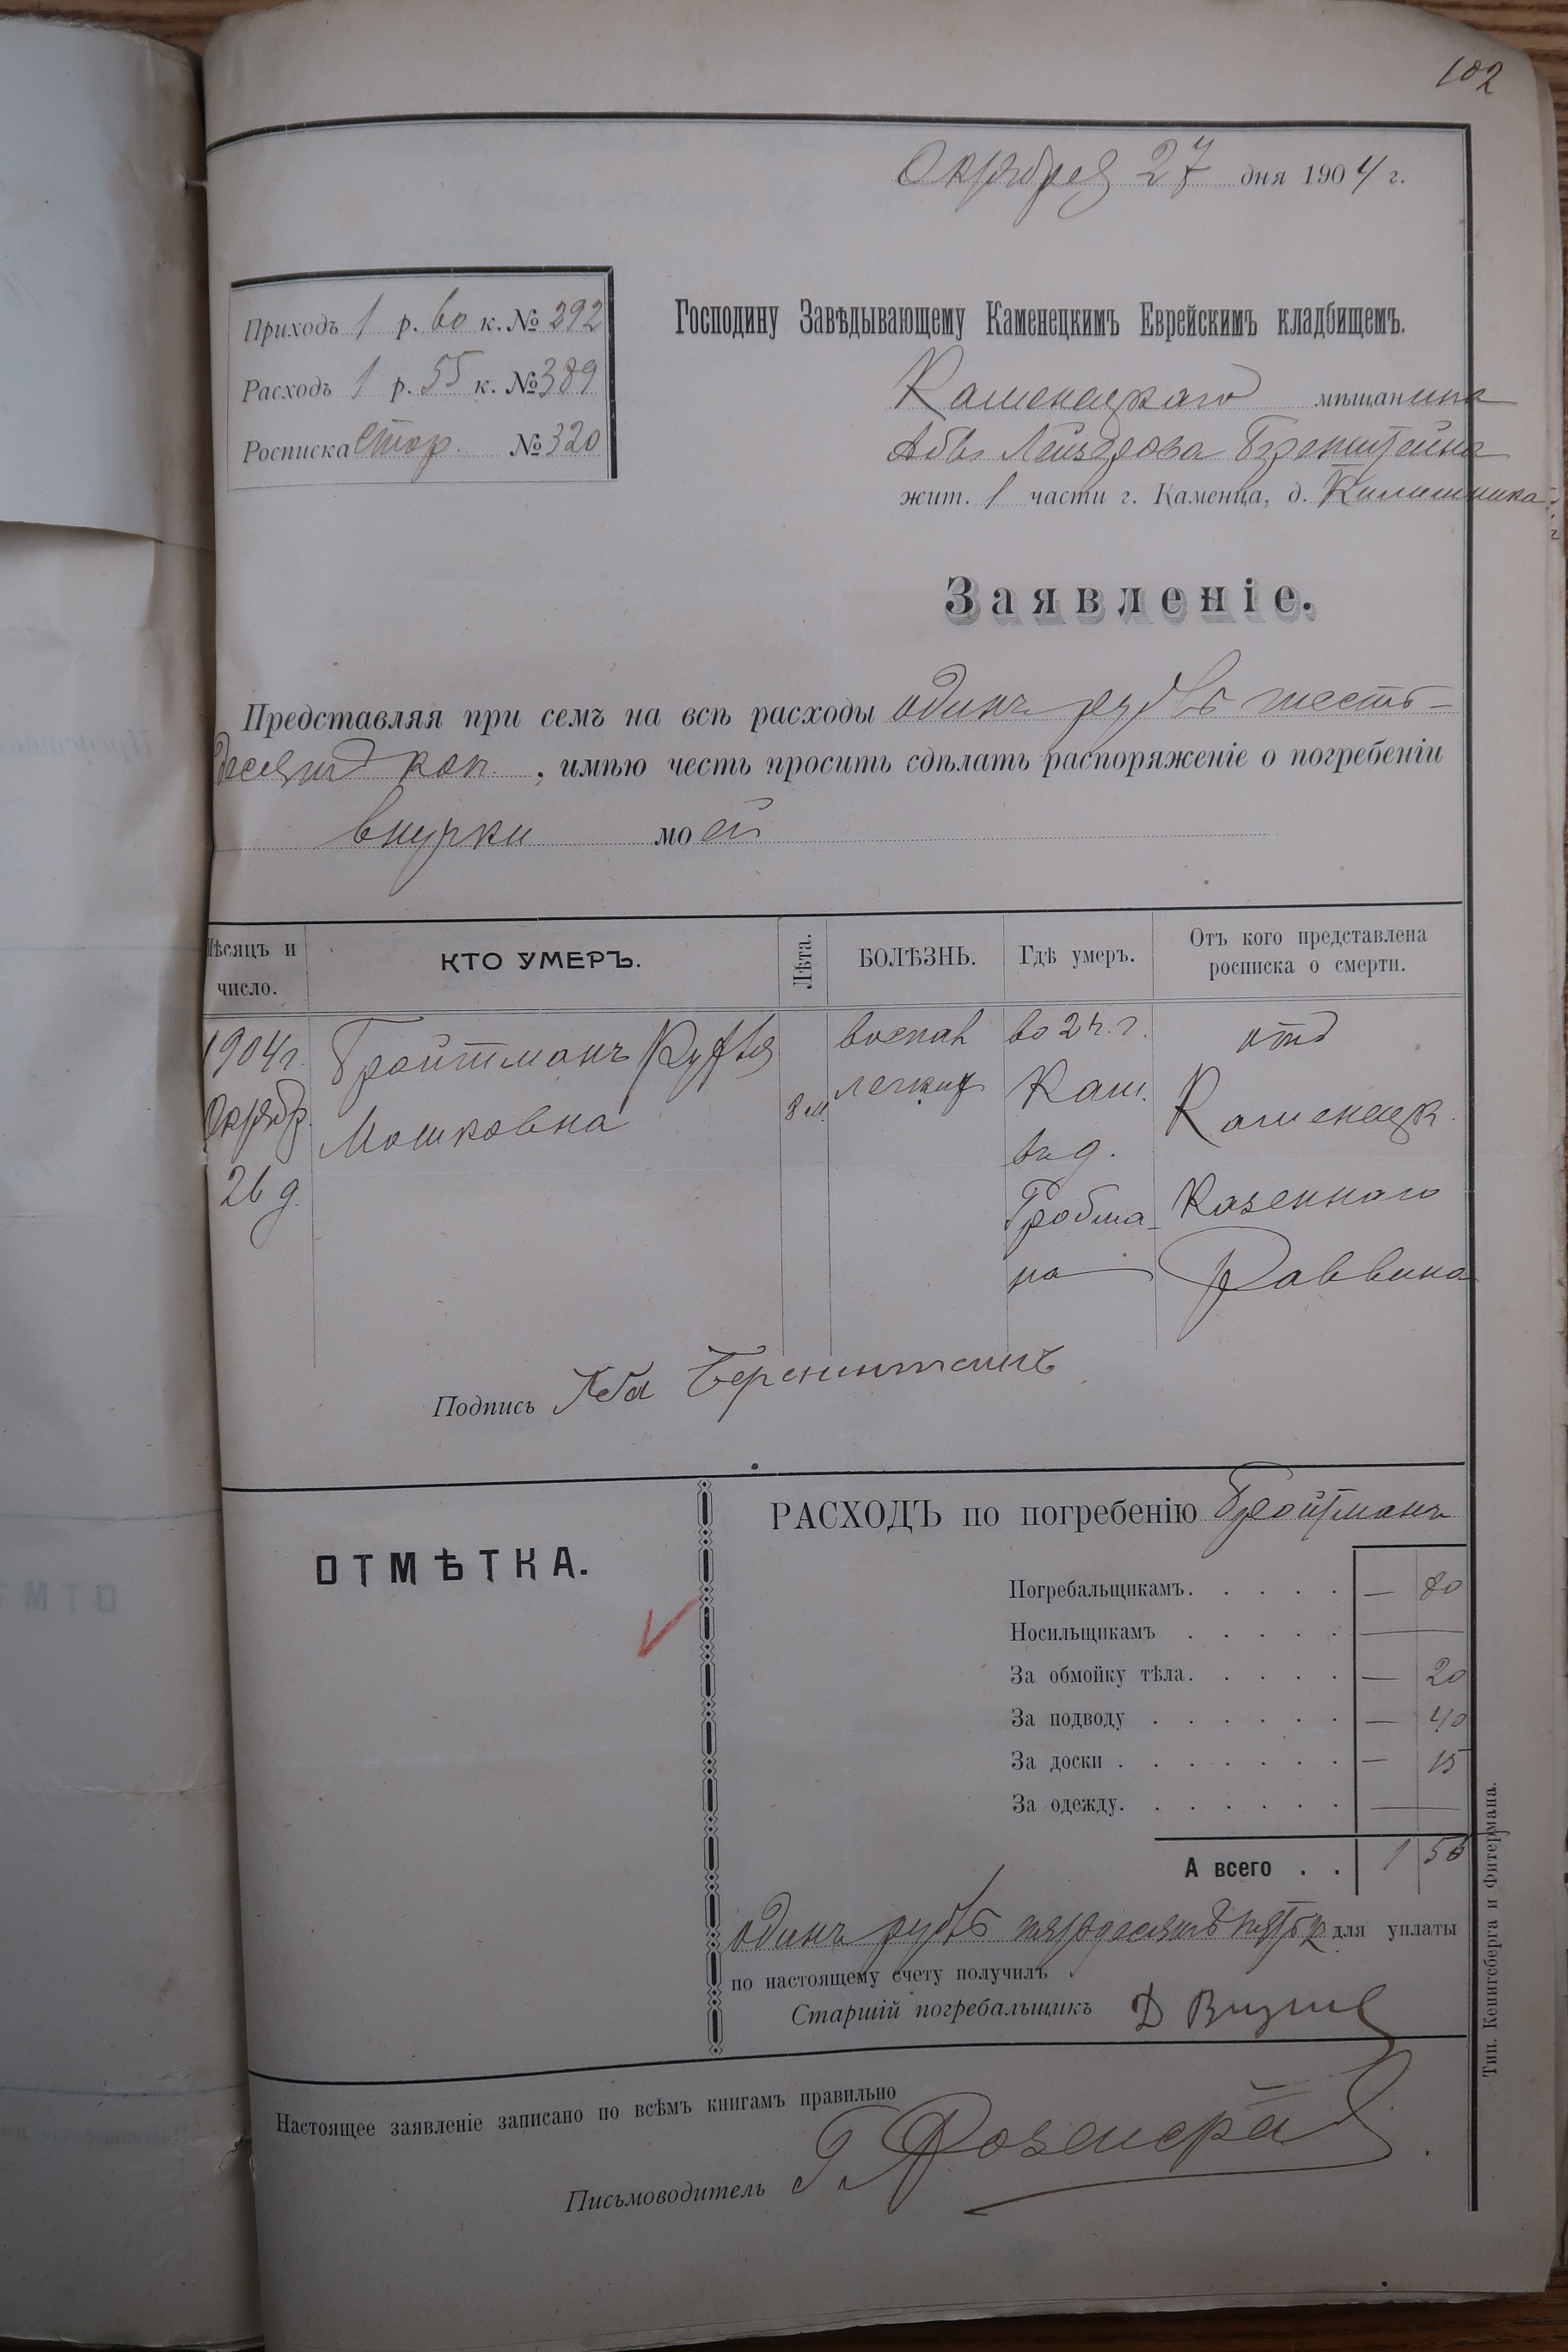 102
Октября 27 дня 1904 г.
Приходъ 1 р. 60 к. № 292
Расходъ 1 р. 55 к. № 389
Росписка Стор. № 320
Господину Завѣдывающему Каменецкимъ Еврейскимъ кладбищемъ.
Каменецкаго мѣщанина
Абы Лейзерова Беренштейна
жит. 1 части г. Каменца, д.
Заявленіе.
Представляя при семъ на всѣ расходы одинъ рубль шесть-
десятъ коп., имѣю честь просить сдѣлать распоряженіе о погребеніи
внучки моей
Мѣсяцъ и число.
КТО УМЕРЪ.
Лѣта.
БОЛѢЗНЬ.
Гдѣ умеръ.
Отъ кого представлена росписка о смерти.
1904 г.
Октябр.
26 д.
Бройтманъ Рухля
Мошковна
8 м.
воспал
легких
во 2 ч. г.
Кам.
въ д.
Гройсма-
на
отъ
Каменецк.
Казеннаго
Раввина
Подпись Аба Беренштейнъ
ОТМѢТКА.
РАСХОДЪ по погребенію Бройтманъ
Погребальщикамъ. . . . . — 80
Носильщикамъ . . . . . —
За обмойку тѣла. . . . . — 20
За подводу . . . . . . — 40
За доски . . . . . . . — 15
За одежду. . . . . . . —
А всего . . 1 55
одинъ рубль пятьдесятъ пять к для уплаты
по настоящему счету получилъ
Старшій погребальщикъ Д
Настоящее заявленіе записано по всѣмъ книгамъ правильно
Письмоводитель Г.
Тип. Кенигсберга и Фитермана.